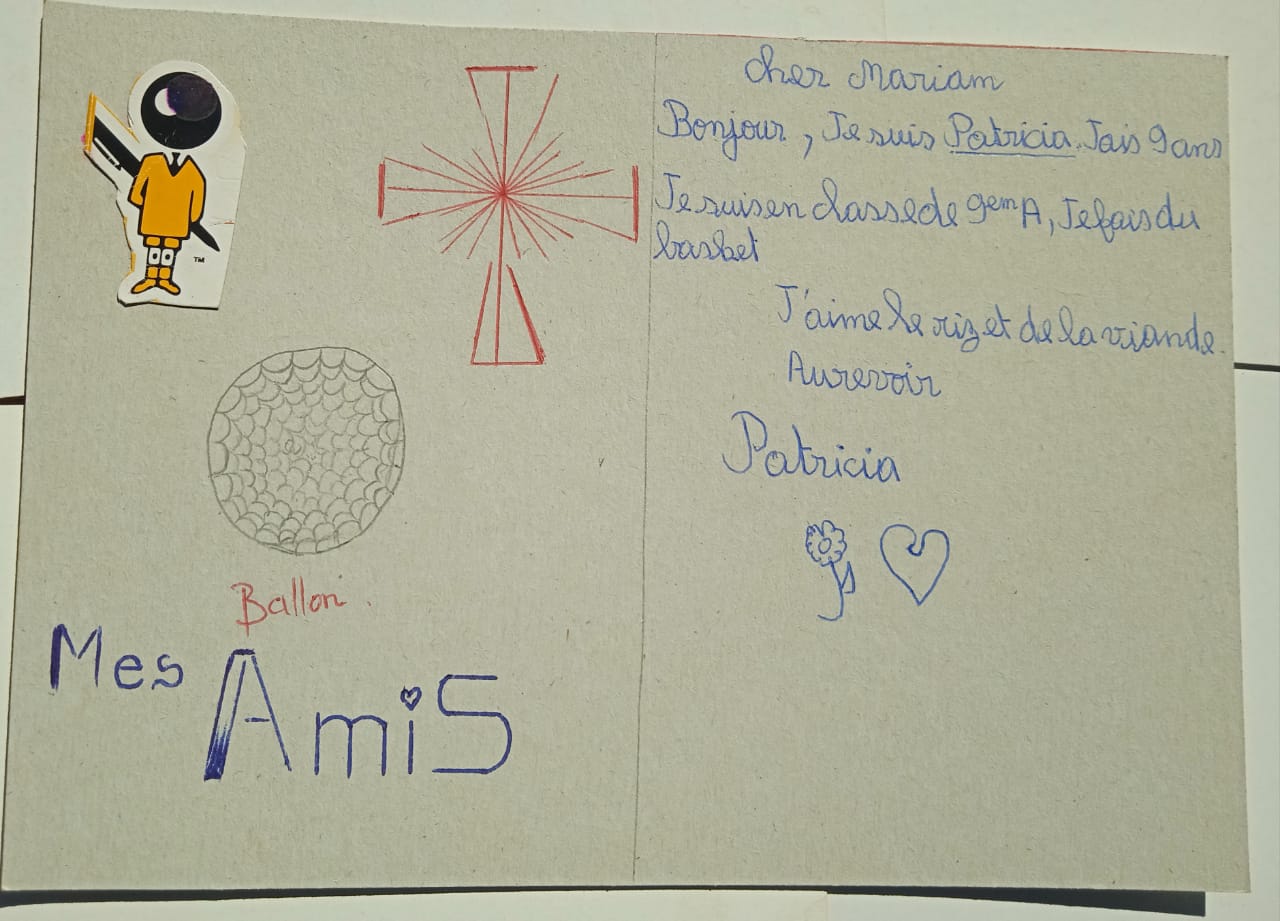 TM
Ballon.
Mes AmiS
cher Mariam
Bonjour, Je suis Patricia. Jais 9 ans
Je suis en classe de 9em A, Je fais du
basbet
J'aime le riz et de la viande.
Aurevoir
Patricia